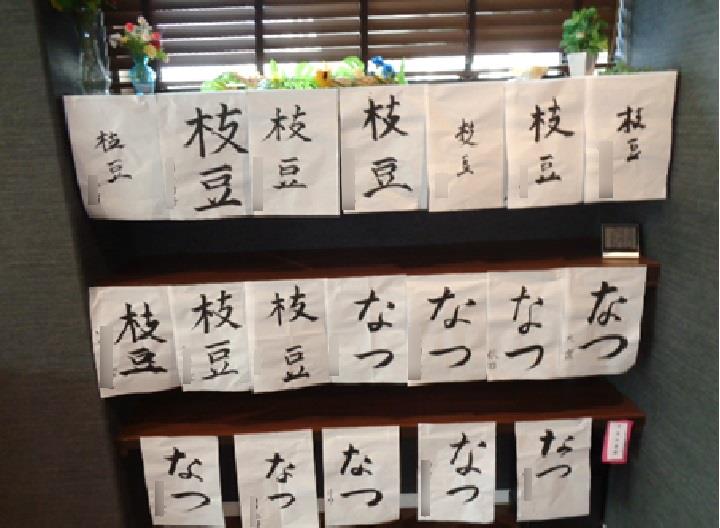 枝豆
枝豆
枝豆
枝豆
枝豆
枝豆
枝豆
枝豆
枝豆
枝豆
なつ
なつ
なつ
なつ
なつ
なつ
なつ
なつ
なつ